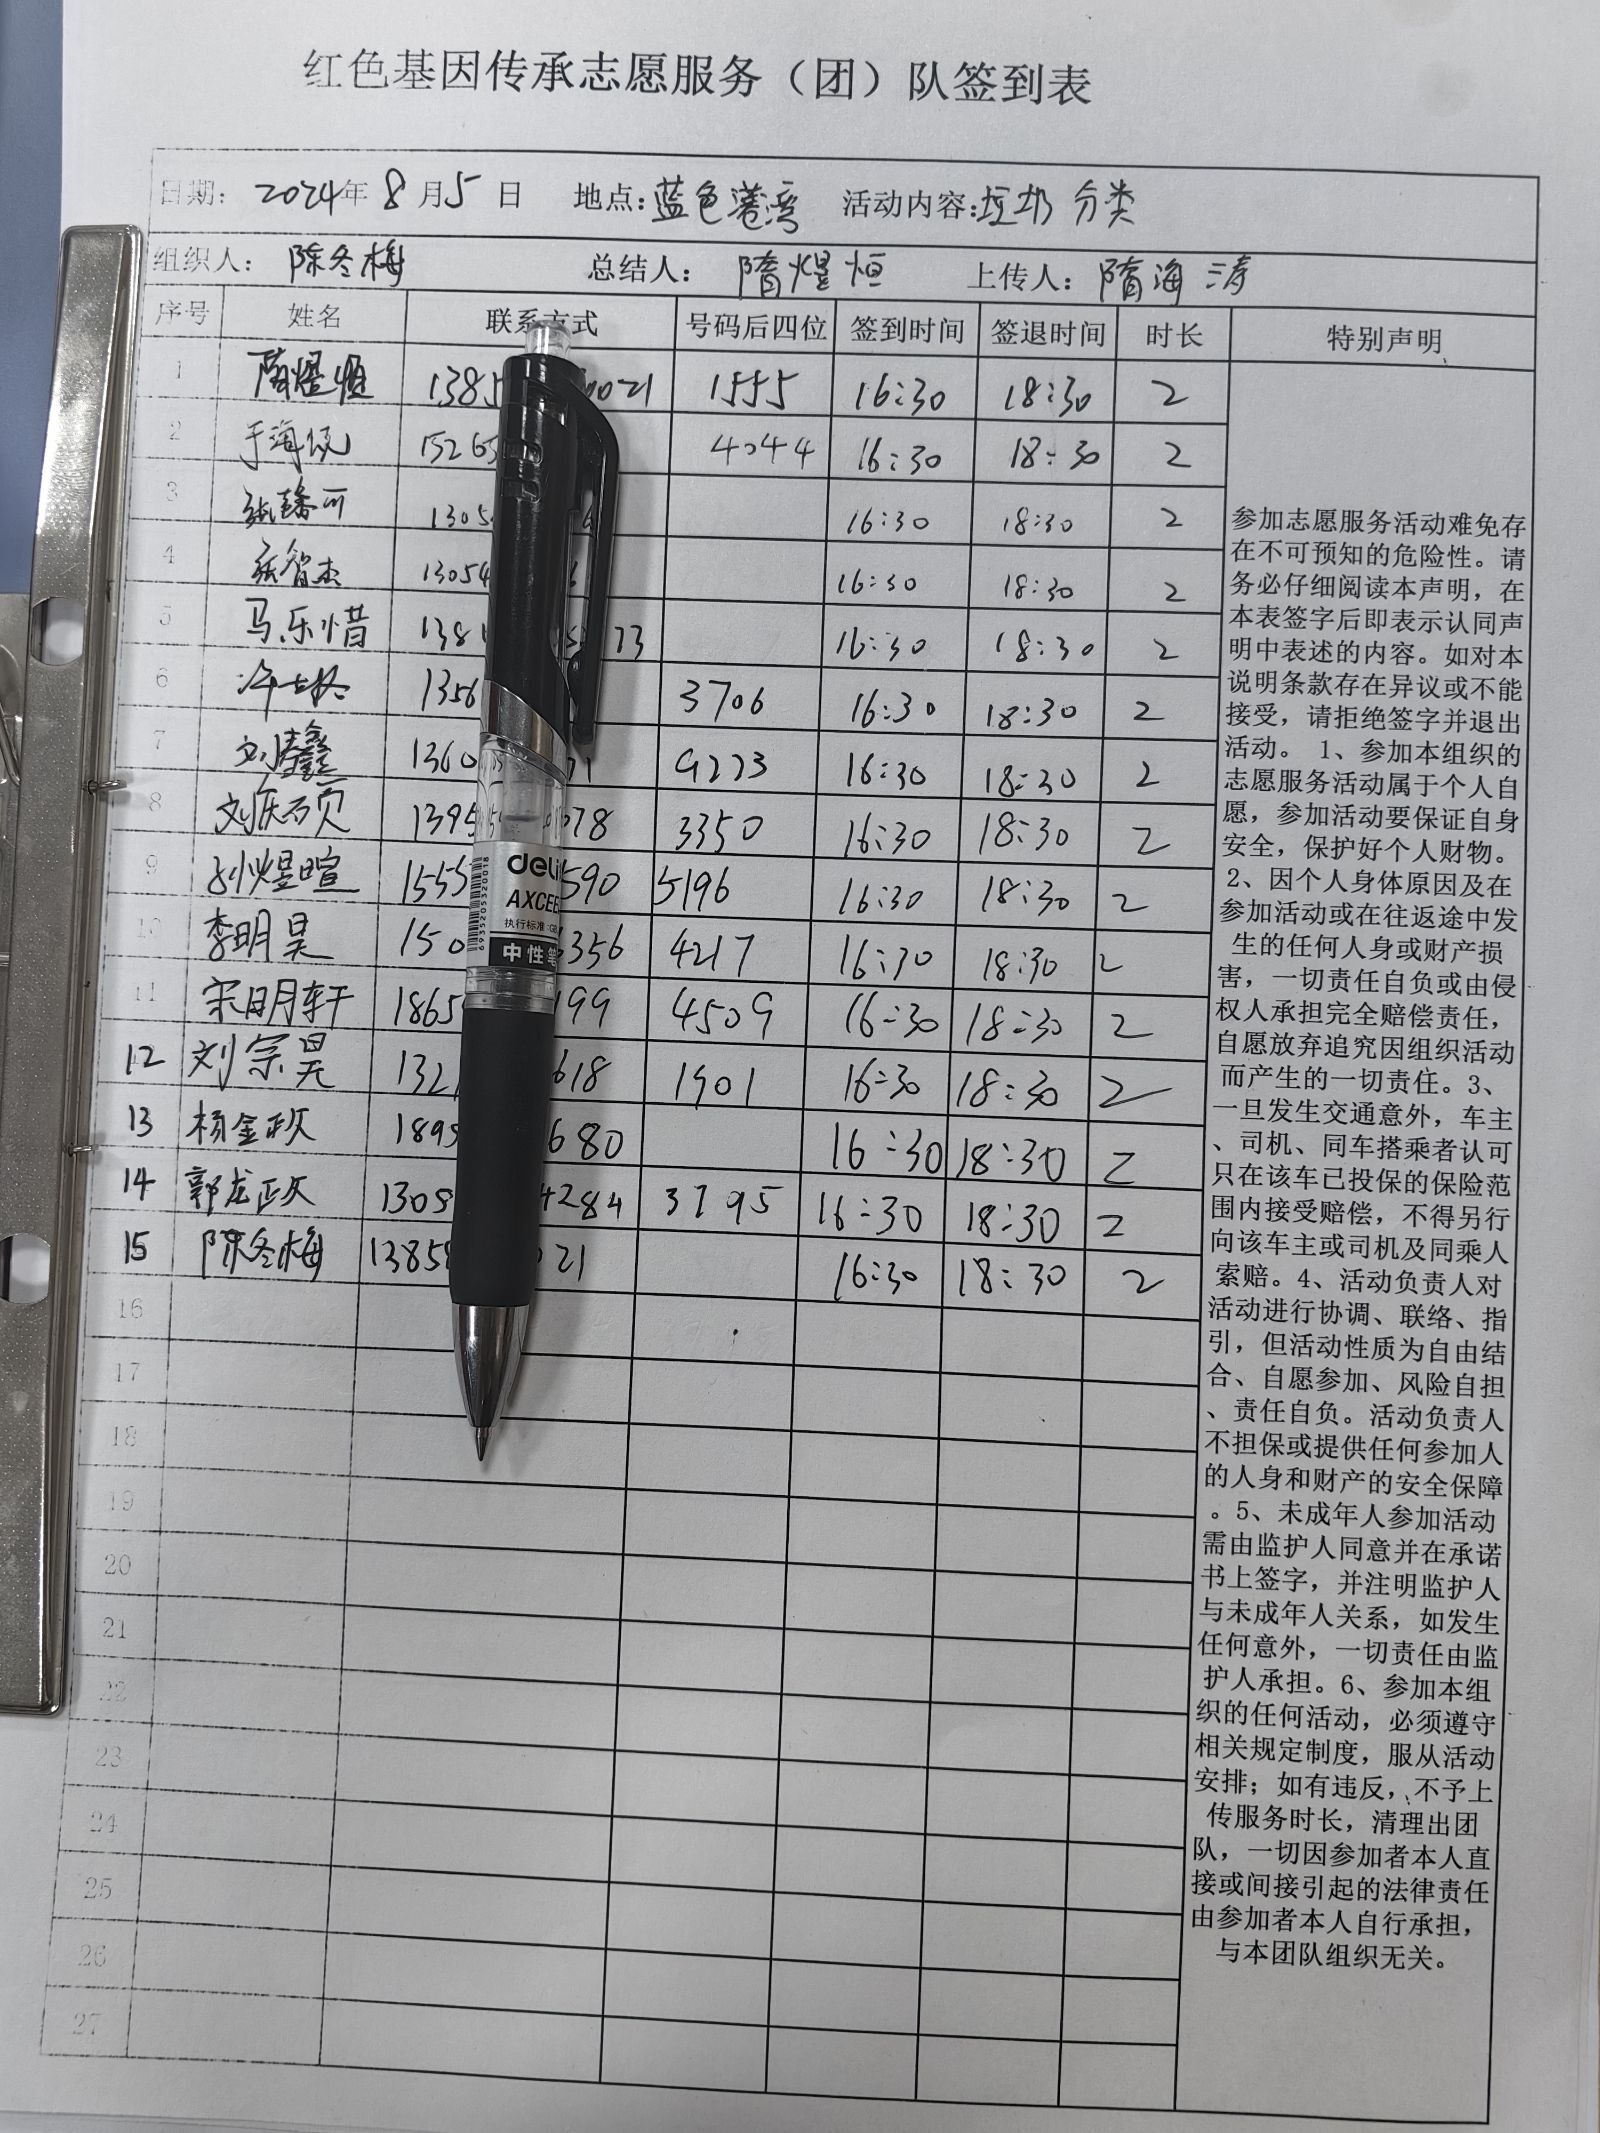 红色基因传承志愿服务（团）队签到表
日期：2024年8月5日 地点：蓝色港湾 活动内容：垃圾分类
组织人：陈冬梅 总结人：隋煜恒 上传人：隋海涛
序号 姓名 联系方式 号码后四位 签到时间 签退时间 时长 特别声明
1 隋煜恒 1385 0021 1555 16:30 18:30 2
2 15265 4044 16:30 18:30 2
3 1305 16:30 18:30 2
4 张智杰 13054 16:30 18:30 2
5 马乐惜 138 73 16:30 18:30 2
6 1356 3706 16:30 18:30 2
7 1360 71 9223 16:30 18:30 2
8 1395 078 3350 16:30 18:30 2
9 煜暄 1555 590 5196 16:30 18:30 2
10 李明昊 150 356 4217 16:30 18:30 2
11 宋明轩 1865 199 4509 16:30 18:30 2
12 刘宗昊 132 618 1901 16:30 18:30 2
13 杨金玖 1895 680 16:30 18:30 2
14 郭龙 1305 4284 3795 16:30 18:30 2
15 陈冬梅 1385 021 16:30 18:30 2
16
17
18
19
20
21
22
23
24
25
26
27
参加志愿服务活动难免存
在不可预知的危险性。请
务必仔细阅读本声明，在
本表签字后即表示认同声
明中表述的内容。如对本
说明条款存在异议或不能
接受，请拒绝签字并退出
活动。1、参加本组织的
志愿服务活动属于个人自
愿，参加活动要保证自身
安全，保护好个人财物。
2、因个人身体原因及在
参加活动或在往返途中发
生的任何人身或财产损
害，一切责任自负或由侵
权人承担完全赔偿责任，
自愿放弃追究因组织活动
而产生的一切责任。3、
一旦发生交通意外，车主
、司机、同车搭乘者认可
只在该车已投保的保险范
围内接受赔偿，不得另行
向该车主或司机及同乘人
索赔。4、活动负责人对
活动进行协调、联络、指
引，但活动性质为自由结
合、自愿参加、风险自担
、责任自负。活动负责人
不担保或提供任何参加人
的人身和财产的安全保障
。5、未成年人参加活动
需由监护人同意并在承诺
书上签字，并注明监护人
与未成年人关系，如发生
任何意外，一切责任由监
护人承担。6、参加本组
织的任何活动，必须遵守
相关规定制度，服从活动
安排；如有违反，不予上
传服务时长，清理出团
队，一切因参加者本人直
接或间接引起的法律责任
由参加者本人自行承担，
与本团队组织无关。
deli
AXCEE
执行标准:GB
中性笔
6935205320018